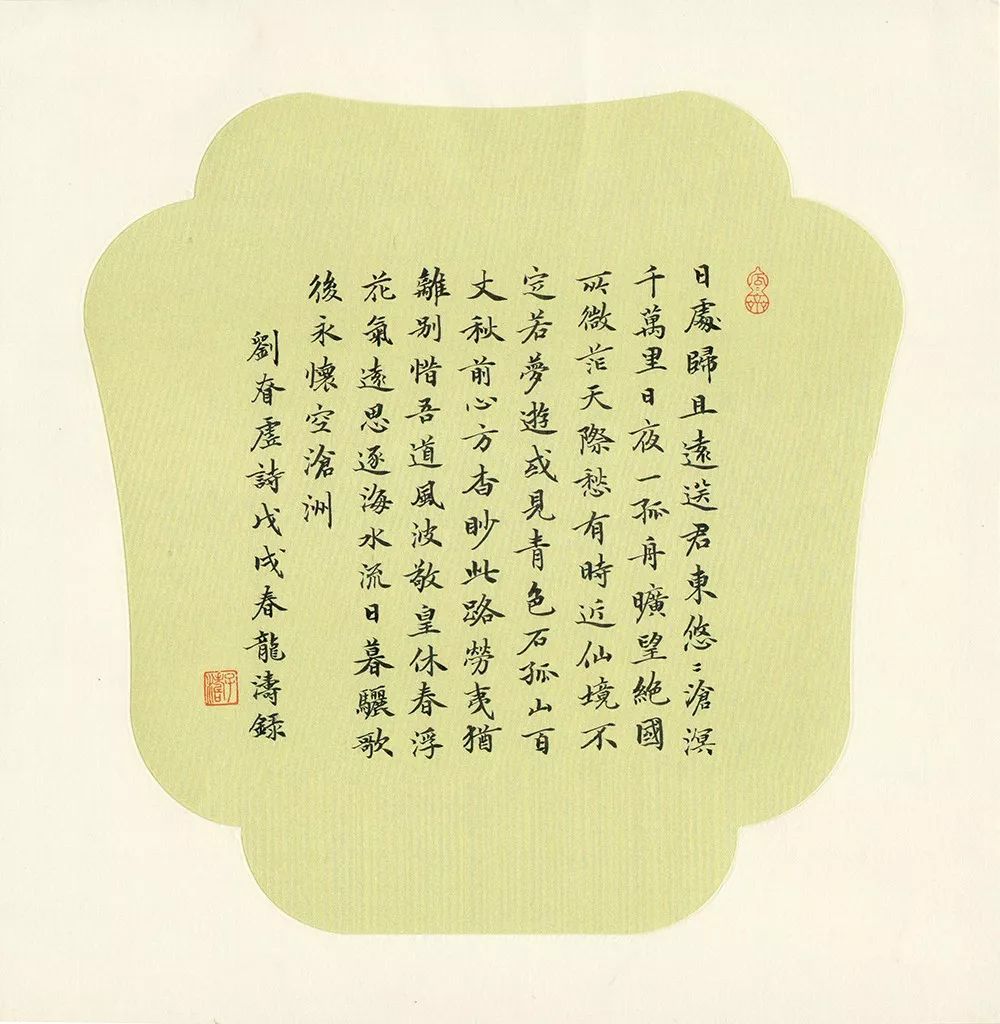 日處歸且遠送君東悠〻滄溟
千萬里日夜一孤舟曠望絕國
所微茫天際愁有時近仙境不
定若夢遊或見青色石孤山百
丈秋前心方杳眇此路勞夷猶
離別惜吾道風波敬皇休春浮
花氣遠思逐海水流日暮驪歌
後永懷空滄洲
劉眘虛詩戊戌春龍濤録